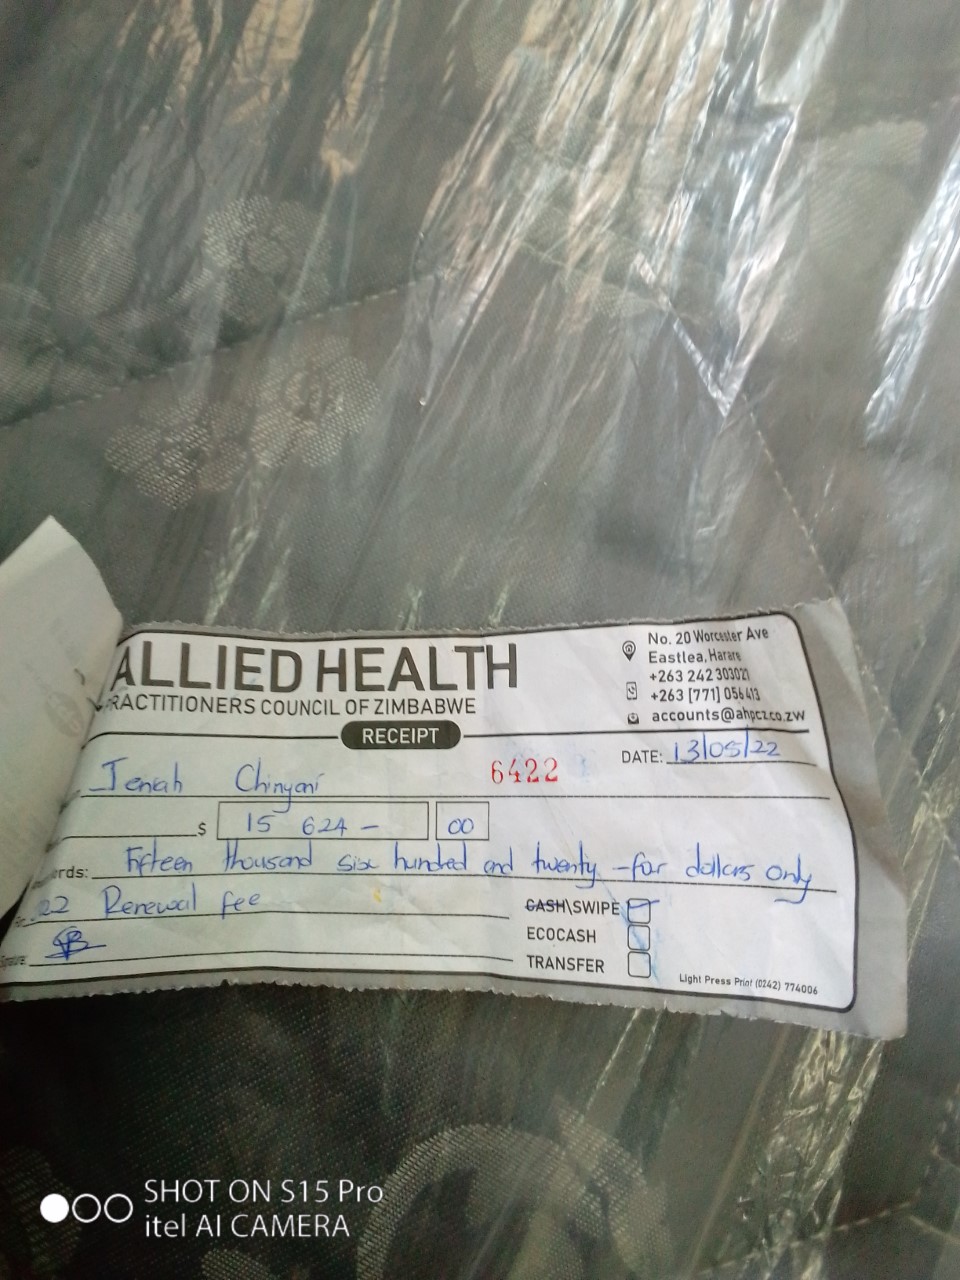 ALLIED HEALTH
PRACTITIONERS COUNCIL OF ZIMBABWE
No. 20 Worcester Ave
Eastlea, Harare
+263 242 303021
+263 [771] 056 413
accounts@ahpcz.co.zw
RECEIPT
DATE: 13/05/22
Jeniah Chinyani
6422
$ 15 624 - 00
ords: Fifteen thousand six hundred and twenty -for dollars only
22 Renewal fee
CASH\SWIPE
ECOCASH
TRANSFER
Light Press Print (0242) 774006
SHOT ON S15 Pro
itel AI CAMERA